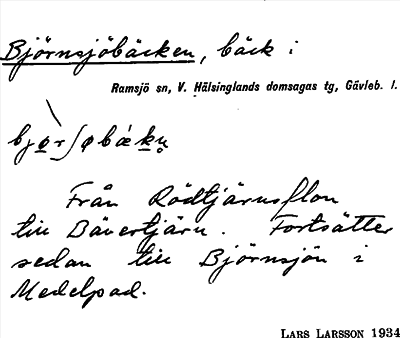 Björnsjöbäcken, bäck i
Ramsjö sn, V. Hälsinglands domsagas tg, Gävleb. l.
Från Rödtjärnsflon
till Bävertjärn. Fortsätter
sedan till Björnsjön i
Medelpad.
LARS LARSSON 1934